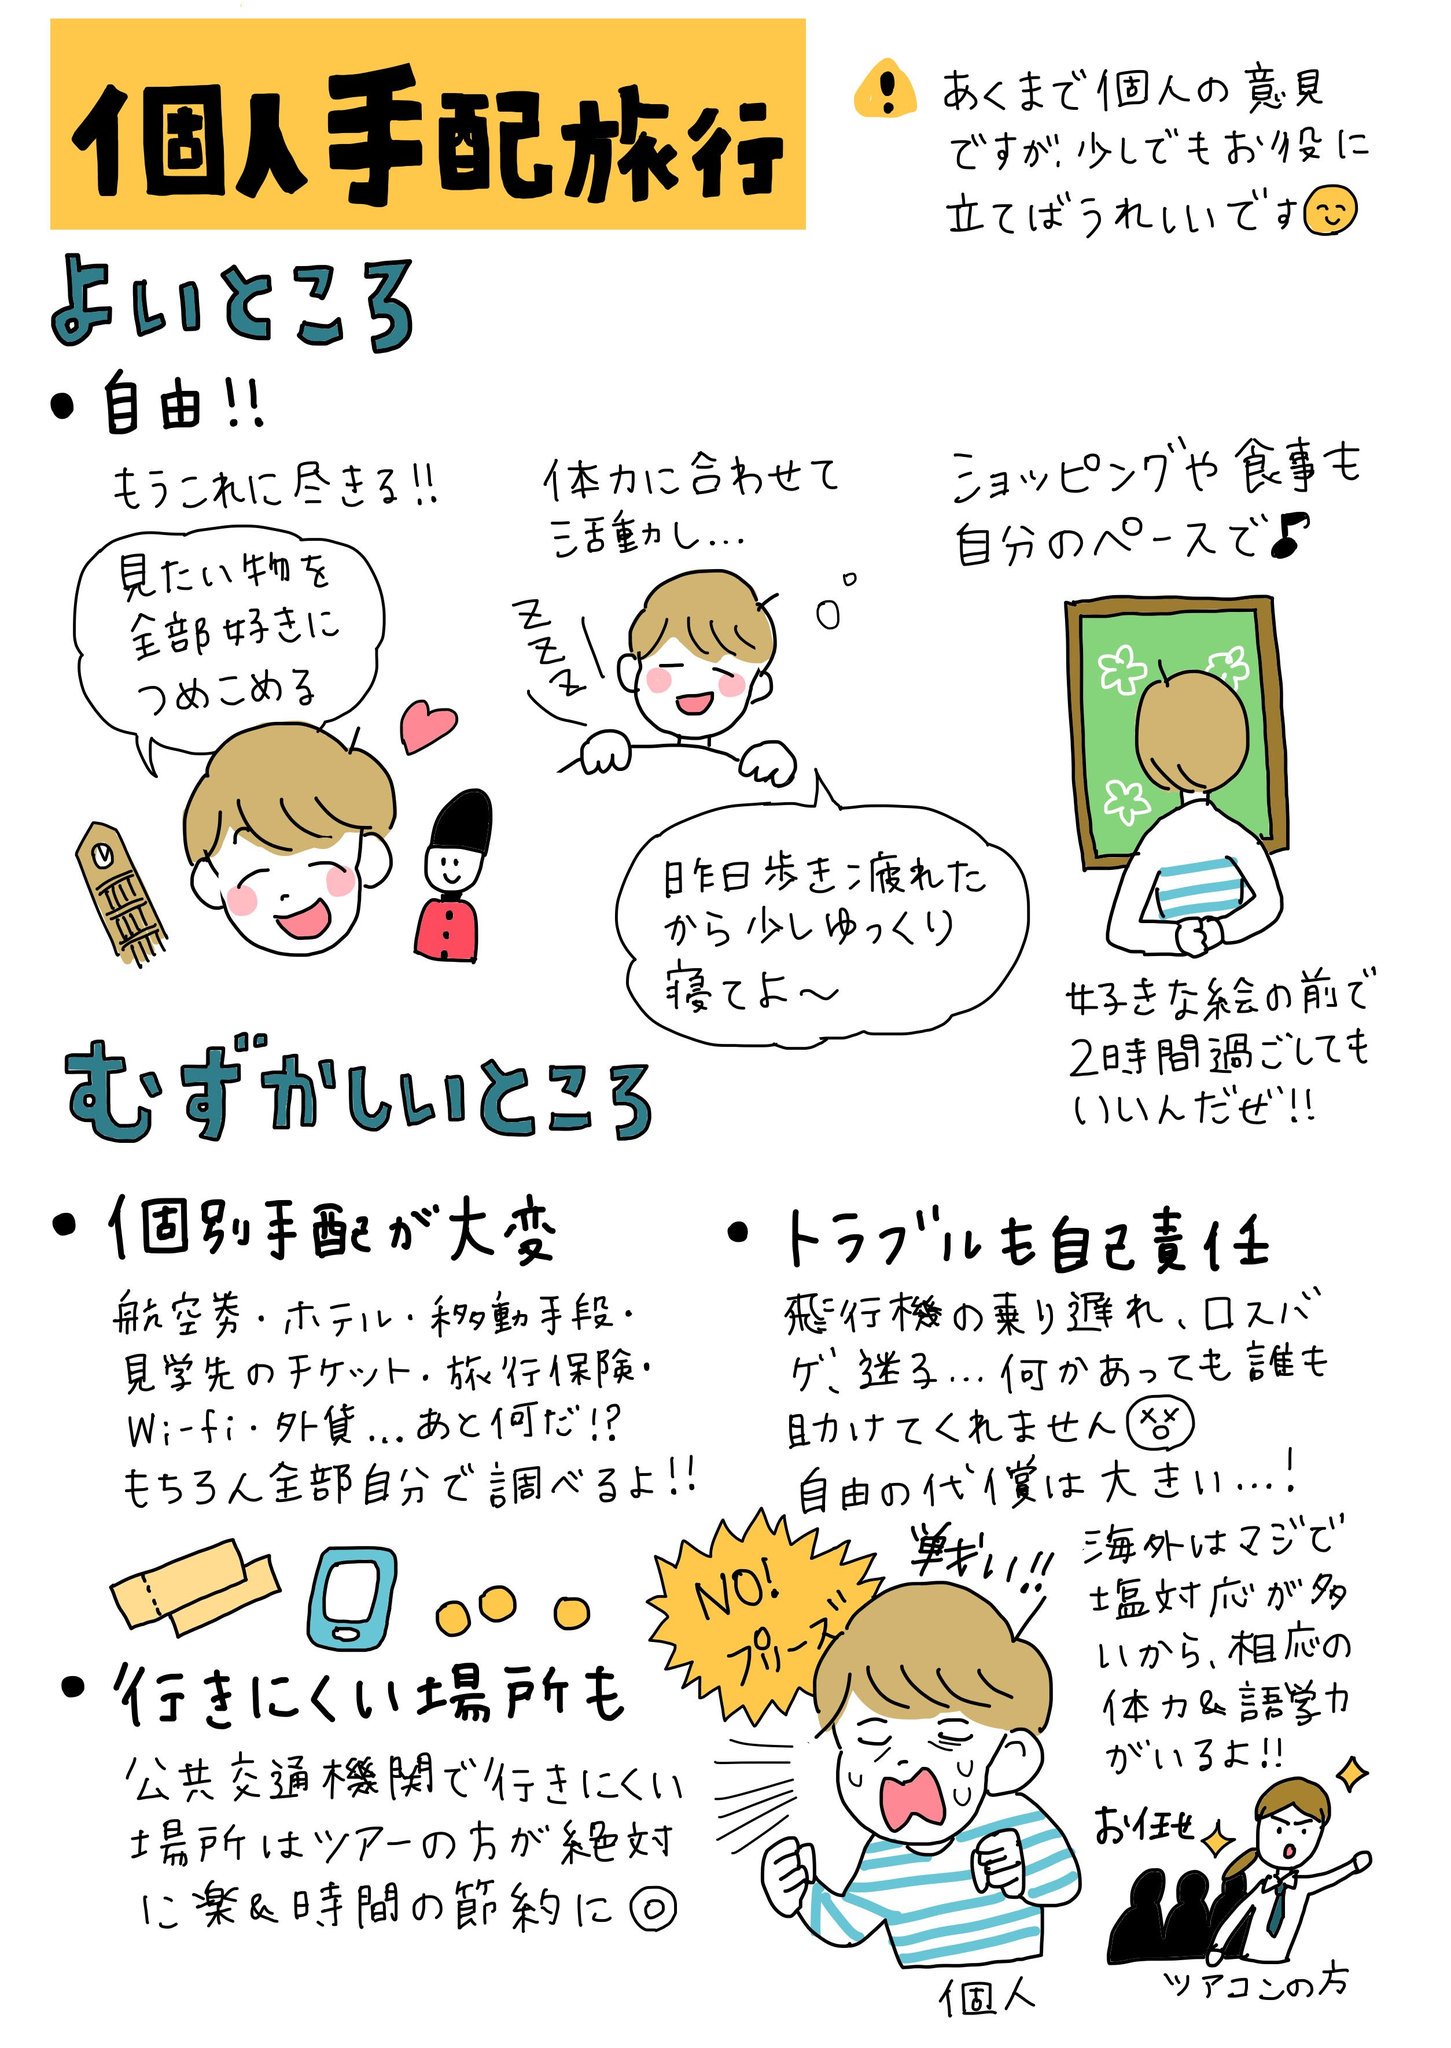 個人手配旅行
あくまで個人の意見
ですが、少しでもお役に
立てばうれしいです
よいところ
• 自由!!
もうこれに尽きる!!
見たい物を
全部好きに
つめこめる
体力に合わせて
活動し...
ZZZZ
昨日歩き疲れた
から少しゆっくり
寝てよ〜
ショッピングや食事も
自分のペースで♪
好きな絵の前で
2時間過ごしても
いいんだぜ!!
むずかしいところ
• 個別手配が大変
航空券・ホテル・移動手段・
見学先のチケット・旅行保険・
Wi-fi・外貨...あと何だ!?
もちろん全部自分で調べるよ!!
• 行きにくい場所も
公共交通機関で行きにくい
場所はツアーの方が絶対
に楽&時間の節約に◎
• トラブルも自己責任
飛行機の乗り遅れ、ロスバ
ゲ、迷子...何かあっても誰も
助けてくれません
自由の代償は大きい...!
NO!
プリーズ
戦い!!
海外はマジで
塩対応が多
いから、相応の
体力&語学力
がいるよ!!
個人
お任せ
ツアコンの方